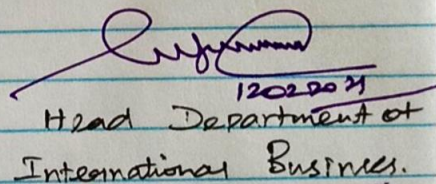 12022021
Head Department of
International Business.